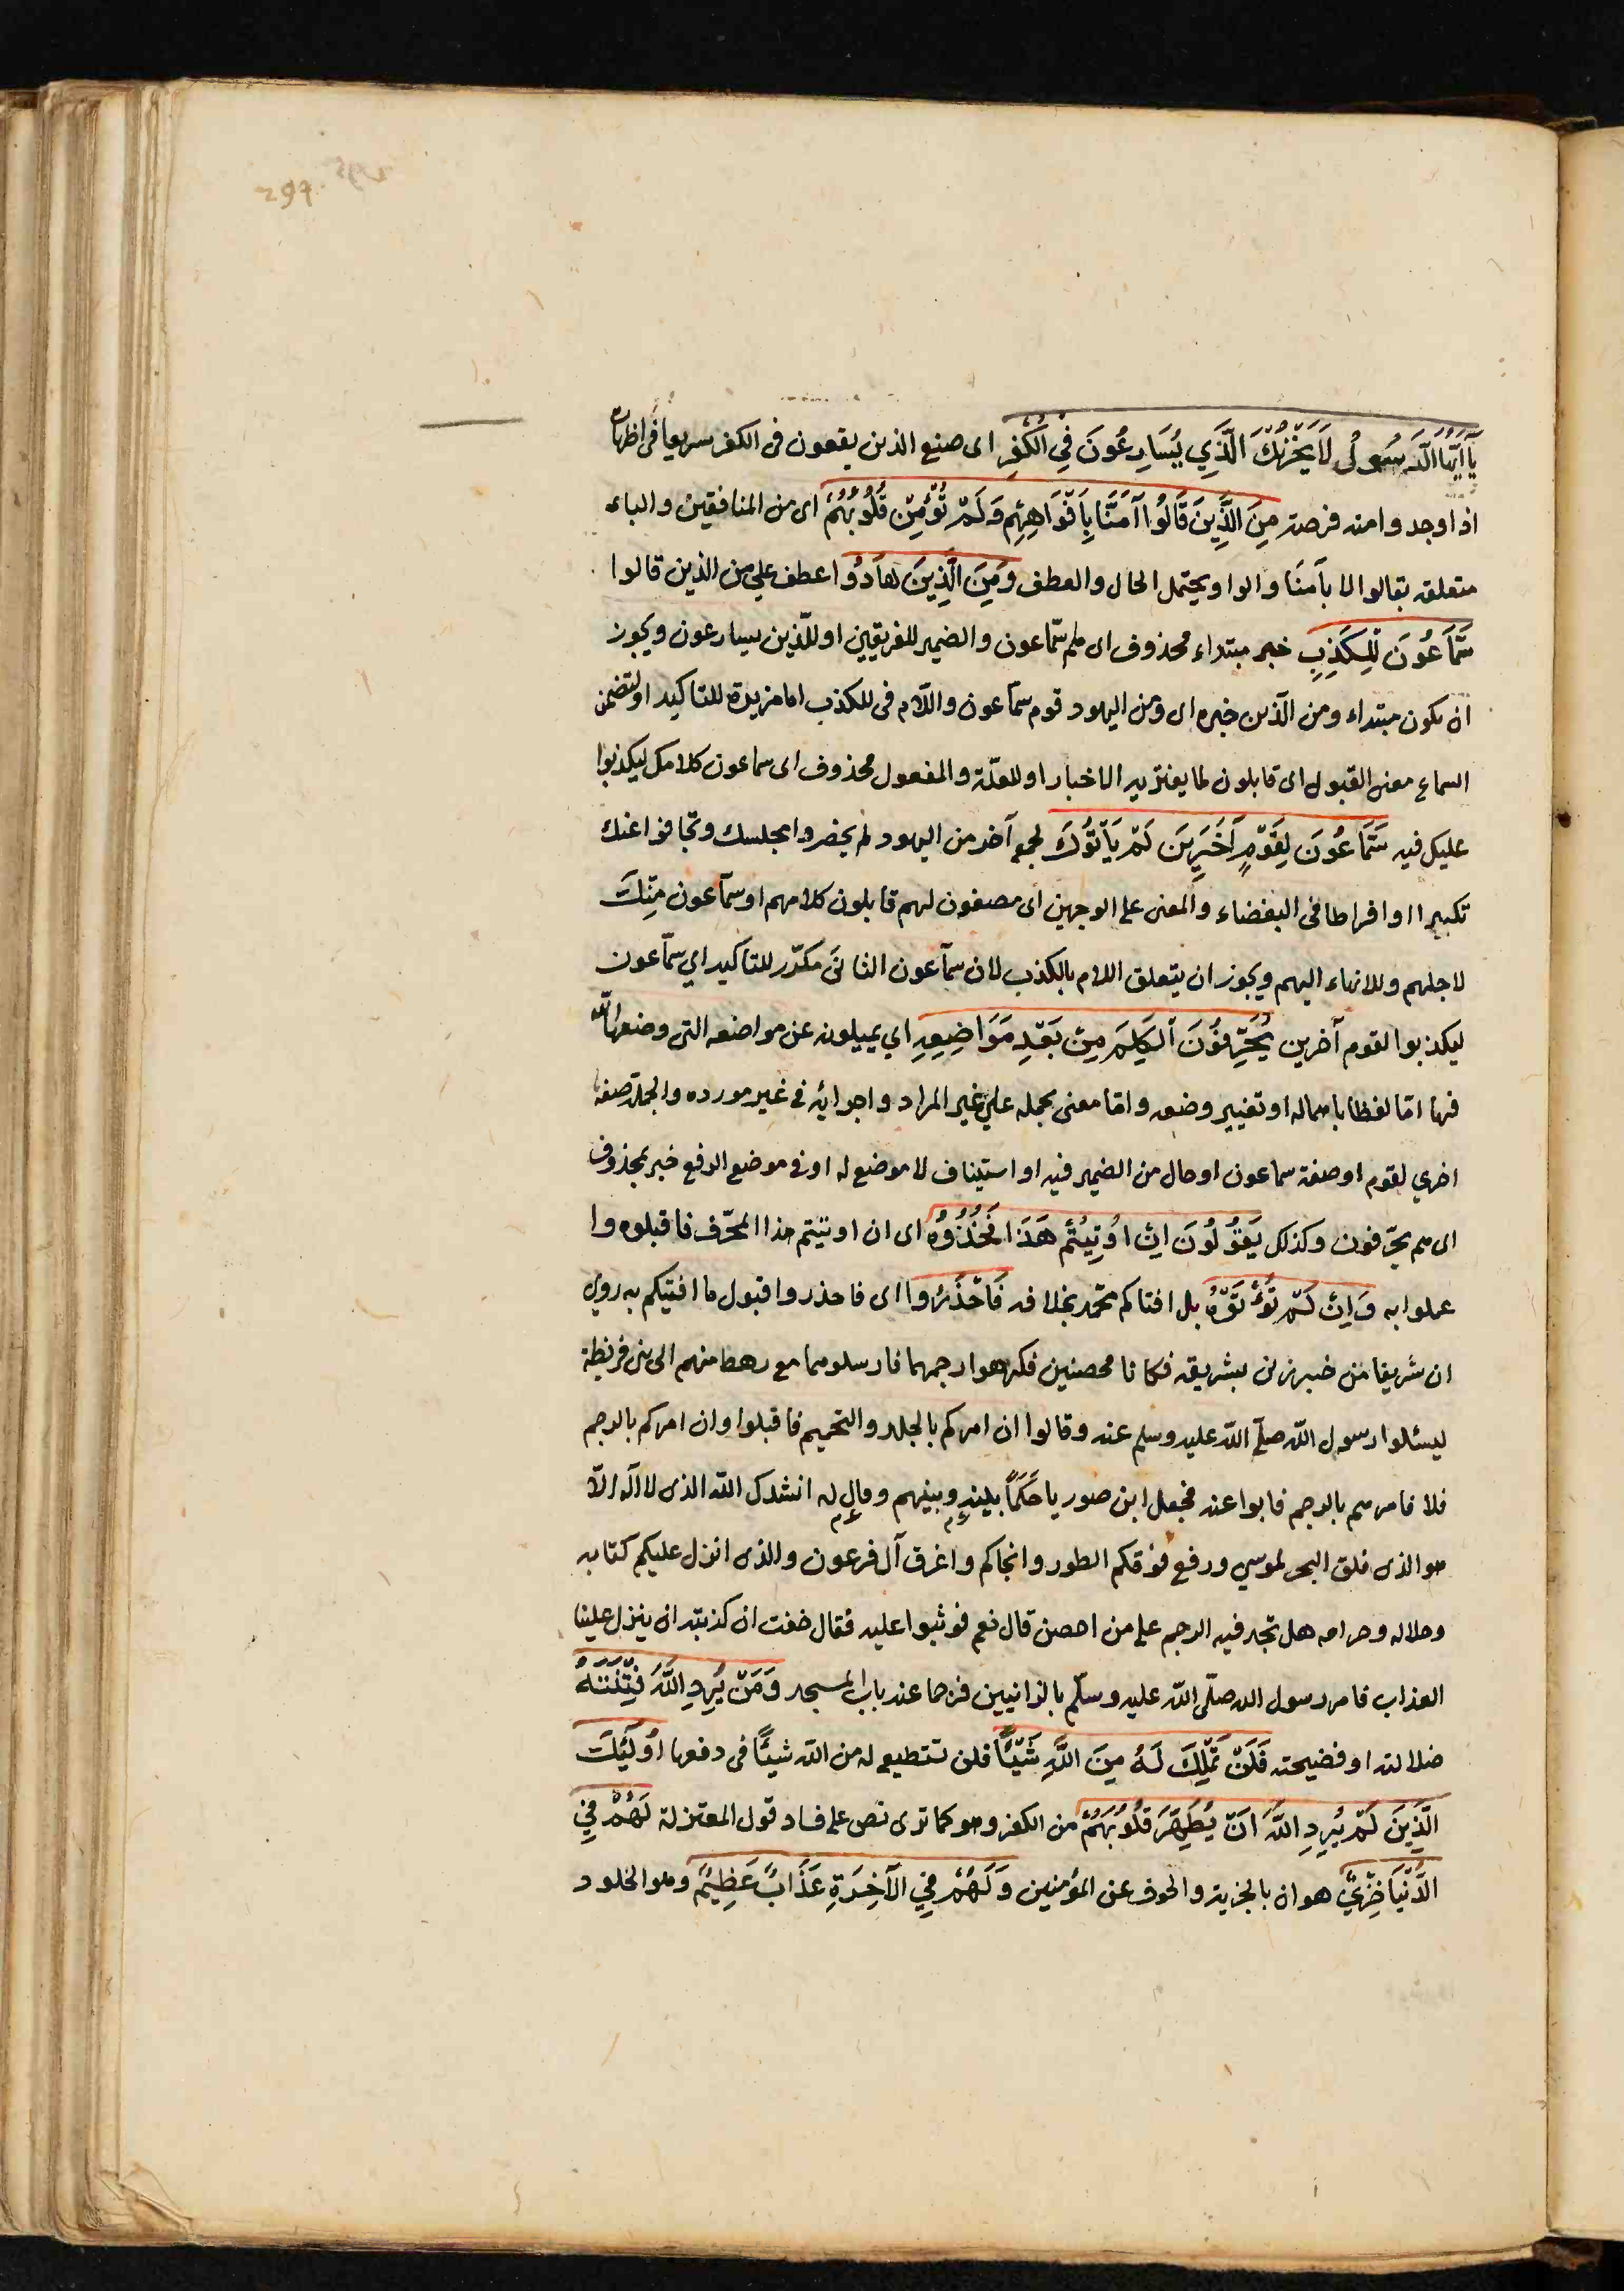 297
يَآ اَيُّهَا الَّرسُولُ لَا يَحْزُنْكَ الَّذَِي يُسَارِعُونَ فِي الْكُفْرِ اى صنيع الذين يقعون فى الكفر سريعا فى اظهاره
اذا وجدوا منه فرصة مِنَ الَّذِينَ قَالُوا آمَنَّا بِاَفْوَاهِهِم وَلَمْ تُؤْمِنْ قُلُوبُهُمْ اى من المنافقين والباء
متعلقه بقالوا لا بآمنَا والواو يحتمل الحال والعطف وَمِنَ الَّذِينَ هَادُوا عطف علي من الذين قالوا
سَمَّاعُونَ لِلْكَذِبِ خبر مبتداء محذوف اى هم سمّاعون والضمير للفريقين او للّذين يسارعون ويجوز
ان يكون مبتداء ومن الّذين خبره اى ومن اليهود قوم سمّاعون واللّام فى للكذب اما مزيدة للتاكيد او لتضمن
السماع معنى القبول اى قابلون لما يفتريه الاخبار او للعلّة والمفعول محذوف اى سماعون كلامك ليكذبوا
عليك فيه سَمَّاعُونَ لِقَوْمٍ آخَرِينَ لَمْ يَأْتُوكَ لجمع آخر من اليهود لم يحضروا مجلسك وتجافوا عنك
تكبيرا او افراطا فى البغضاء والمعنى على الوجهين اى مصغون لهم قابلون كلامهم او سمّاعون مِنكَ
لاجلهم وللانهاء اليهم ويجوز ان يتعلق اللام بالكذب لان سمّاعون الثانى مكرّر للتاكيد اي سمّاعون
ليكذبوا لقوم آخرين يُحَرِّفُونَ الْكَلِمَ مِنْ بَعْدِ مَوَاضِعِهِ اي يميلونه عن مواضعه التى وضعها الله
فيها امّا لفظا باهماله او تغيير وضعه وامّا معنى بحمله علي غير المراد واجرائه فى غير مورده والجملة صفة
اخري لقوم او صفة سماعون او حال من الضمير فيه او استيناف لا موضع له او فى موضع الرفع خبر لمحذوف
اى هم يحرّفون وكذلك يَقُولُونَ اِنْ اُوتِيتُمْ هَذَا فَخُذُوهُ اى ان اوتيتم هذا المحّرف فاقبلوه وا
عملوا به وَاِنْ لَمْ تُؤْتَوْهُ بل افتاكم محمّد بخلافه فَاحْذَرُوا اى فاحذروا قبول ما افتيكم به روي
ان شريفا من خيبر زنى بشريفه فكانا محصنين فكرهوا رجمهما فارسلوهما مع رهط منهم الى بنى قريظة
ليسئلوا رسول اللّه صلّي اللّه عليه وسلم عنه وقالوا ان امركم بالجلد والتحميم فاقبلوا وان امركم بالرجم
فلا فامرهم بالرجم فابوا عنه فجعل ابن صوريا حَكَمًا بينه وبينهم وقال له انشدك اللّه الذى لا اله الّا
هو الذى فلق البحر لموسي ورفع فوقكم الطور وانجاكم واغرق آل فرعون والذى انزل عليكم كتابه
وحلاله وحرامه هل تجد فيه الرجم على من احصن قال نعم فوثبوا عليه فقال خفت ان كذبته ان ينزل علينا
العذاب فامر رسول الله صلّى اللّه عليه وسلّم بالزانيين فرجما عند باب المسجد وَمَنْ يُرِدِ اللَّهُ فِتْنَتَهُ
ضلالته او فضيحته فَلَنْ تَمْلِكَ لَهُ مِنَ اللَّهِ شَيْئًا فلن تستطيع له من اللّه شيئًا فى دفعها اُولَئِكَ
الَّذِينَ لَمْ يُرِدِ اللَّهُ اَنْ يُطَهِّرَ قُلُوبَهُمْ من الكفر وهو كما ترى نص على فساد قول المعتزلة لَهُمْ فِي
الدُّنْيَا خِزْيٌ هوان بالجزية والخوف عن المؤمنين وَلَهُمْ فِي الْآخِرَةِ عَذَابٌ عَظِيْمٌ وهو الخلود